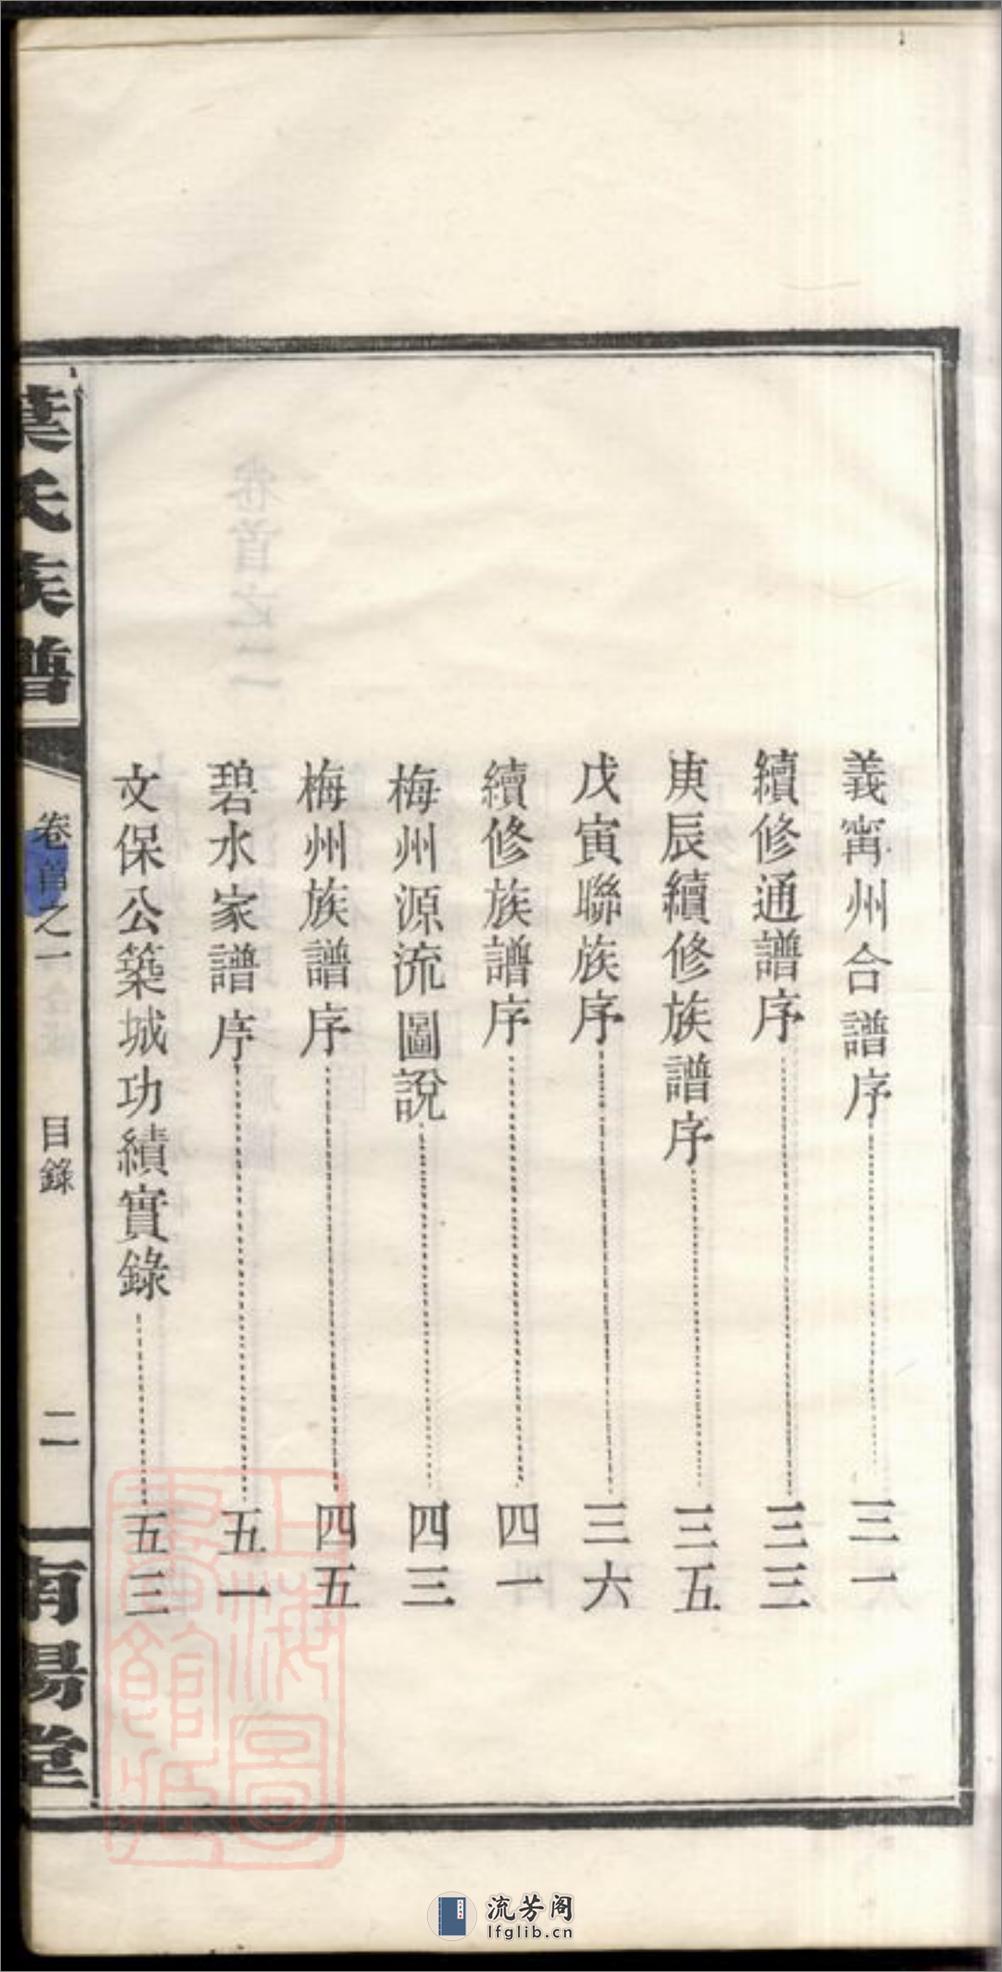 義甯州合譜序三一
續修通譜序三三
庚辰續修族譜序三五
戊寅聯族序三六
續修族譜序四一
梅州源流圖說四三
梅州族譜序四五
碧水家譜序五一
文保公築城功績實錄五三
葉氏族譜
卷首之一
目錄
二
南陽堂
卷首之二
上海圖書館藏
流芳阁
lfglib.cn